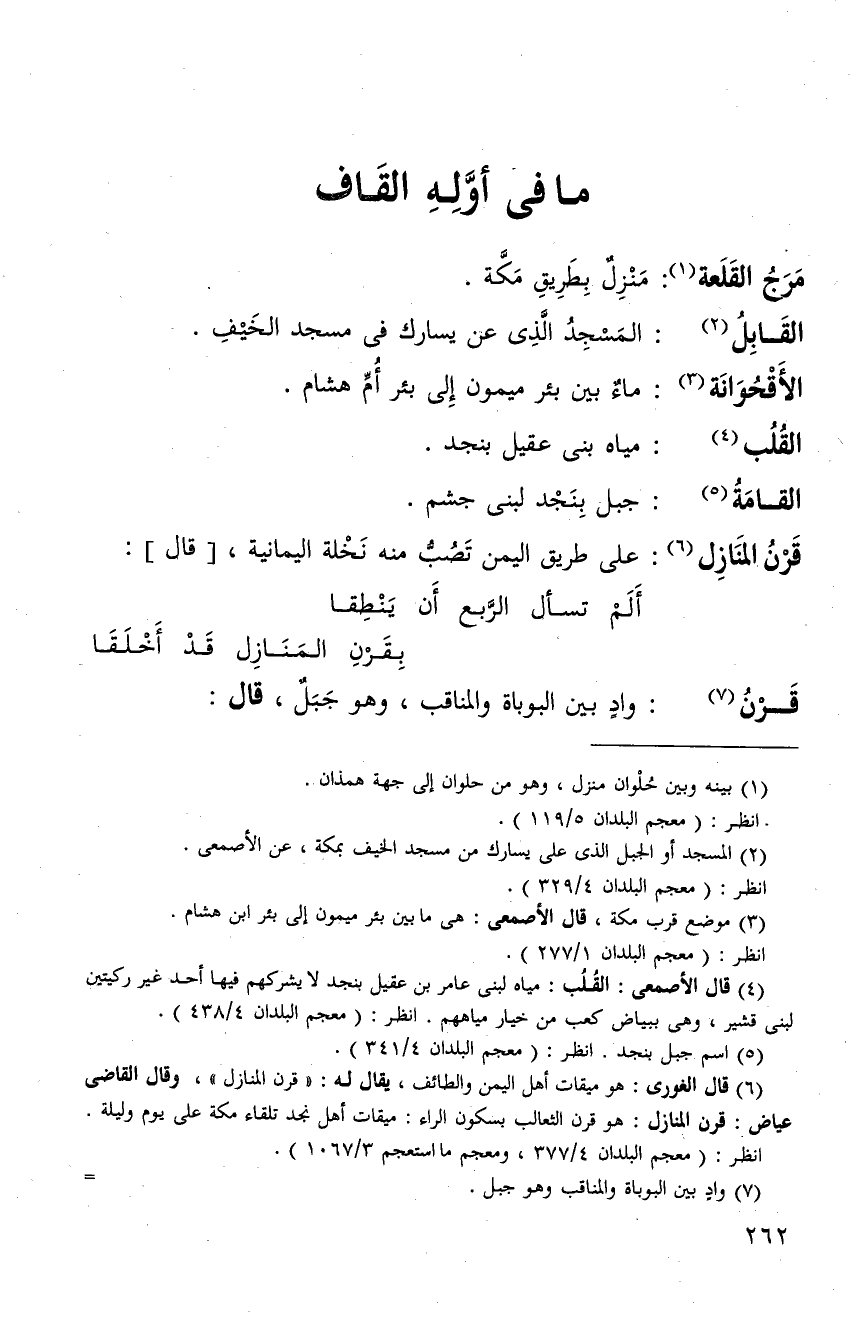 ما فى أوَّلِهِ القَاف
مَرَجُ القَلَعة(١): مَنْزِلٌ بِطَرِيقِ مَكَّة .
القَابِلُ(٢) : المَسْجِدُ الَّذِى عن يسارك فى مسجد الخَيْفِ .
الأَقْحُوَانَة(٣) : ماءٌ بين بئر ميمون إِلى بئر أُمِّ هشام .
القُلُب(٤) : مياه بنى عقيل بنجد .
القامَةُ(٥) : جبل بِنَجْد لبنى جشم .
قَرْنُ المَنَازِل(٦) : على طريق اليمن تَصُبُّ منه نَخْلة اليمانية ، [ قال ] :
أَلَمْ تسأل الرَّبع أَن يَنْطِقا
بِقَرْنِ المَنَازِل قَدْ أَخْلَقَا
قَرْنُ(٧) : وادٍ بين البوباة والمناقب ، وهو جَبَلٌ ، قال :
(١) بينه وبين حُلْوان منزل ، وهو من حلوان إلى جهة همذان .
. انظر : ( معجم البلدان ١١٩/٥ ) .
(٢) المسجد أو الجبل الذى على يسارك من مسجد الخيف بمكة ، عن الأصمعى .
انظر : ( معجم البلدان ٣٢٩/٤ ) .
(٣) موضع قرب مكة ، قال الأصمعى : هى ما بين بئر ميمون إلى بئر ابن هشام .
انظر : ( معجم البلدان ٢٧٧/١ ) .
(٤) قال الأصمعى : القُلُب : مياه لبنى عامر بن عقيل بنجد لا يشركهم فيها أحد غير ركيتين
لبنى قشير ، وهى ببياض كعب من خيار مياههم . انظر : ( معجم البلدان ٤٣٨/٤ ) .
(٥) اسم جبل بنجد . انظر : ( معجم البلدان ٣٤١/٤ ) .
(٦) قال الغورى : هو ميقات أهل اليمن والطائف ، يقال له : « قرن المنازل » ، وقال القاضى
عياض : قرن المنازل : هو قرن الثعالب بسكون الراء : ميقات أهل نجد تلقاء مكة على يوم وليلة .
انظر : ( معجم البلدان ٣٧٧/٤ ، ومعجم ما استعجم ١٠٦٧/٣ ) .
(٧) وادٍ بين البوباة والمناقب وهو جبل .
=
٢٦٢